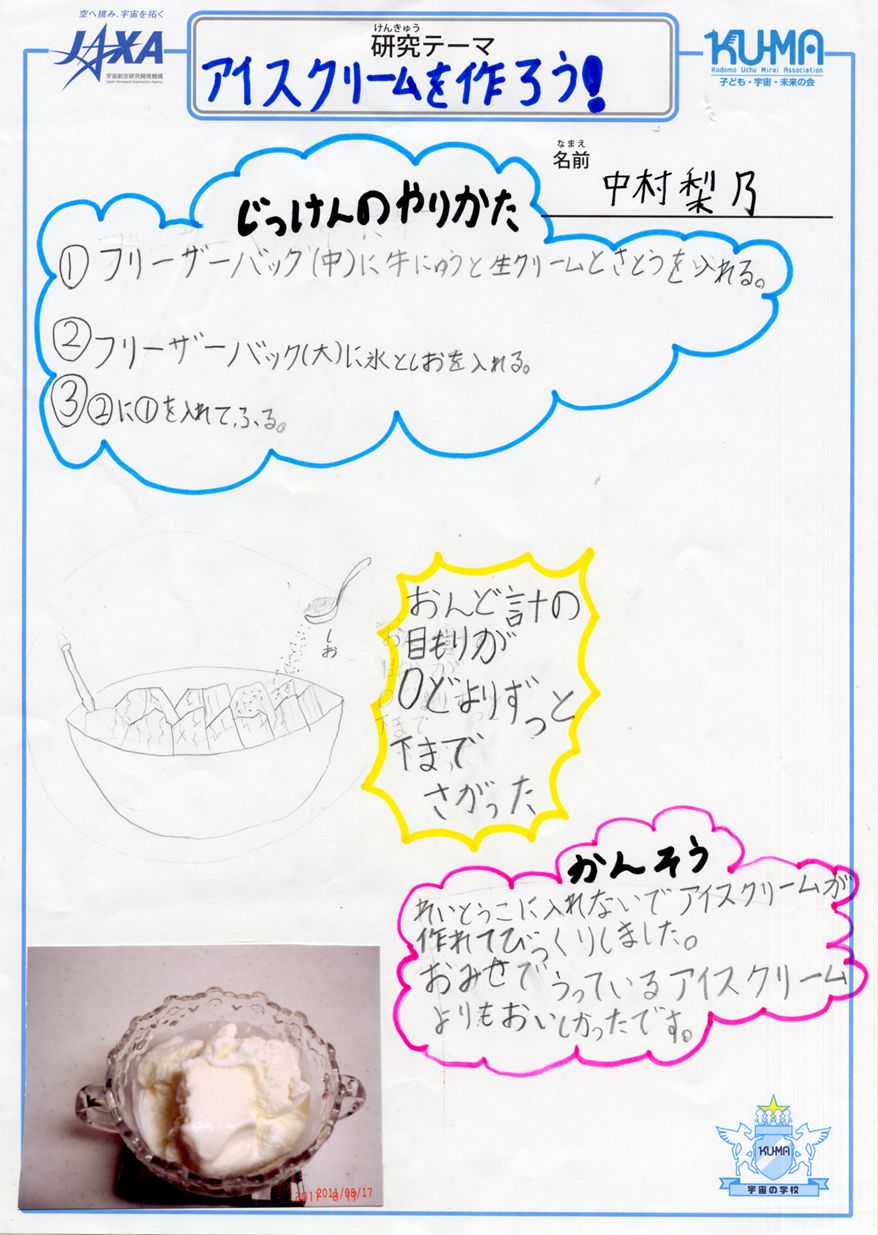 空へ挑み、宇宙を拓く
JAXA
宇宙航空研究開発機構
Japan Aerospace Exploration Agency
けんきゅう
研究テーマ
アイスクリームを作ろう!
KU-MA
Kodomo Uchu Mirai Association
子ども・宇宙・未来の会
なまえ
名前
中村梨乃
じっけんのやりかた
① フリーザーバック(中)に牛にゅうと生クリームとさとうを入れる。
② フリーザーバック(大)に氷としおを入れる。
③ ②に①を入れて、ふる。
しお
おんど計の
目もりが
0どよりずっと
下まで
さがった
かんそう
れいとうこに入れないでアイスクリームが
作れてびっくりしました。
おみせでうっているアイスクリーム
よりもおいしかったです。
2011/08/17
KU-MA
宇宙の学校